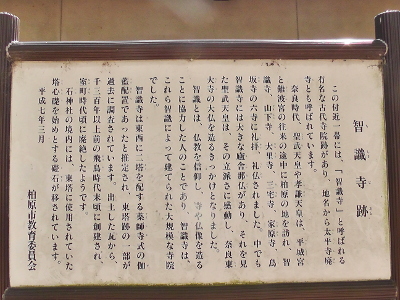 智識寺跡
この付近一帯には、「智識寺」と呼ばれる
有名な古代寺院跡があり、地名から太平寺廃
寺とも呼ばれています。
奈良時代、聖武天皇や孝謙天皇は、平城宮
と難波宮の往来の途中に柏原の地を訪れ、智
識寺、山下寺、大里寺、三宅寺、家原寺、鳥
坂寺の六寺に礼拝、礼仏されました。中でも
智識寺には大きな盧舎那仏があり、それを見
た聖武天皇は、その立派さに感動し、奈良東
大寺の大仏を造るきっかけとなりました。
智識とは、仏教を信仰し、寺や仏像を造る
ことに協力した人のことであり、智識寺は、
これら智識によって建てられた大規模な寺院
でした。
智識寺は東西に二塔を配する薬師寺式の伽
藍配置であったと推定され、東塔跡の一部が
過去に調査されています。出土した瓦から、
千三百年以上前の飛鳥時代末頃に創建され、
室町時代頃に廃絶したようです。
石神社の境内には、東塔に使用されていた
塔心礎を始めとする礎石が移されています。
平成十年三月
柏原市教育委員会